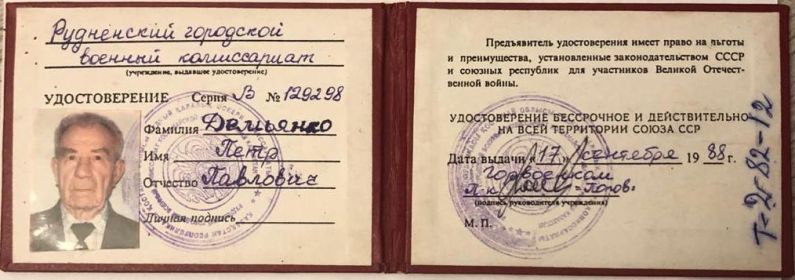 Рудненский городской
военный комиссариат
(учреждение, выдавшее удостоверение)
УДОСТОВЕРЕНИЕ Серия В № 129298
Фамилия Демьянко
Имя Петр
Отчество Павлович
Личная подпись
Предъявитель удостоверения имеет право на льготы
и преимущества, установленные законодательством СССР
и союзных республик для участников Великой Отечест-
венной войны.
УДОСТОВЕРЕНИЕ БЕССРОЧНОЕ И ДЕЙСТВИТЕЛЬНО
НА ВСЕЙ ТЕРРИТОРИИ СОЮЗА ССР
Дата выдачи «17» сентября 1988 г.
Горвоенком
П-к Попов
(подпись руководителя учреждения)
М. П.